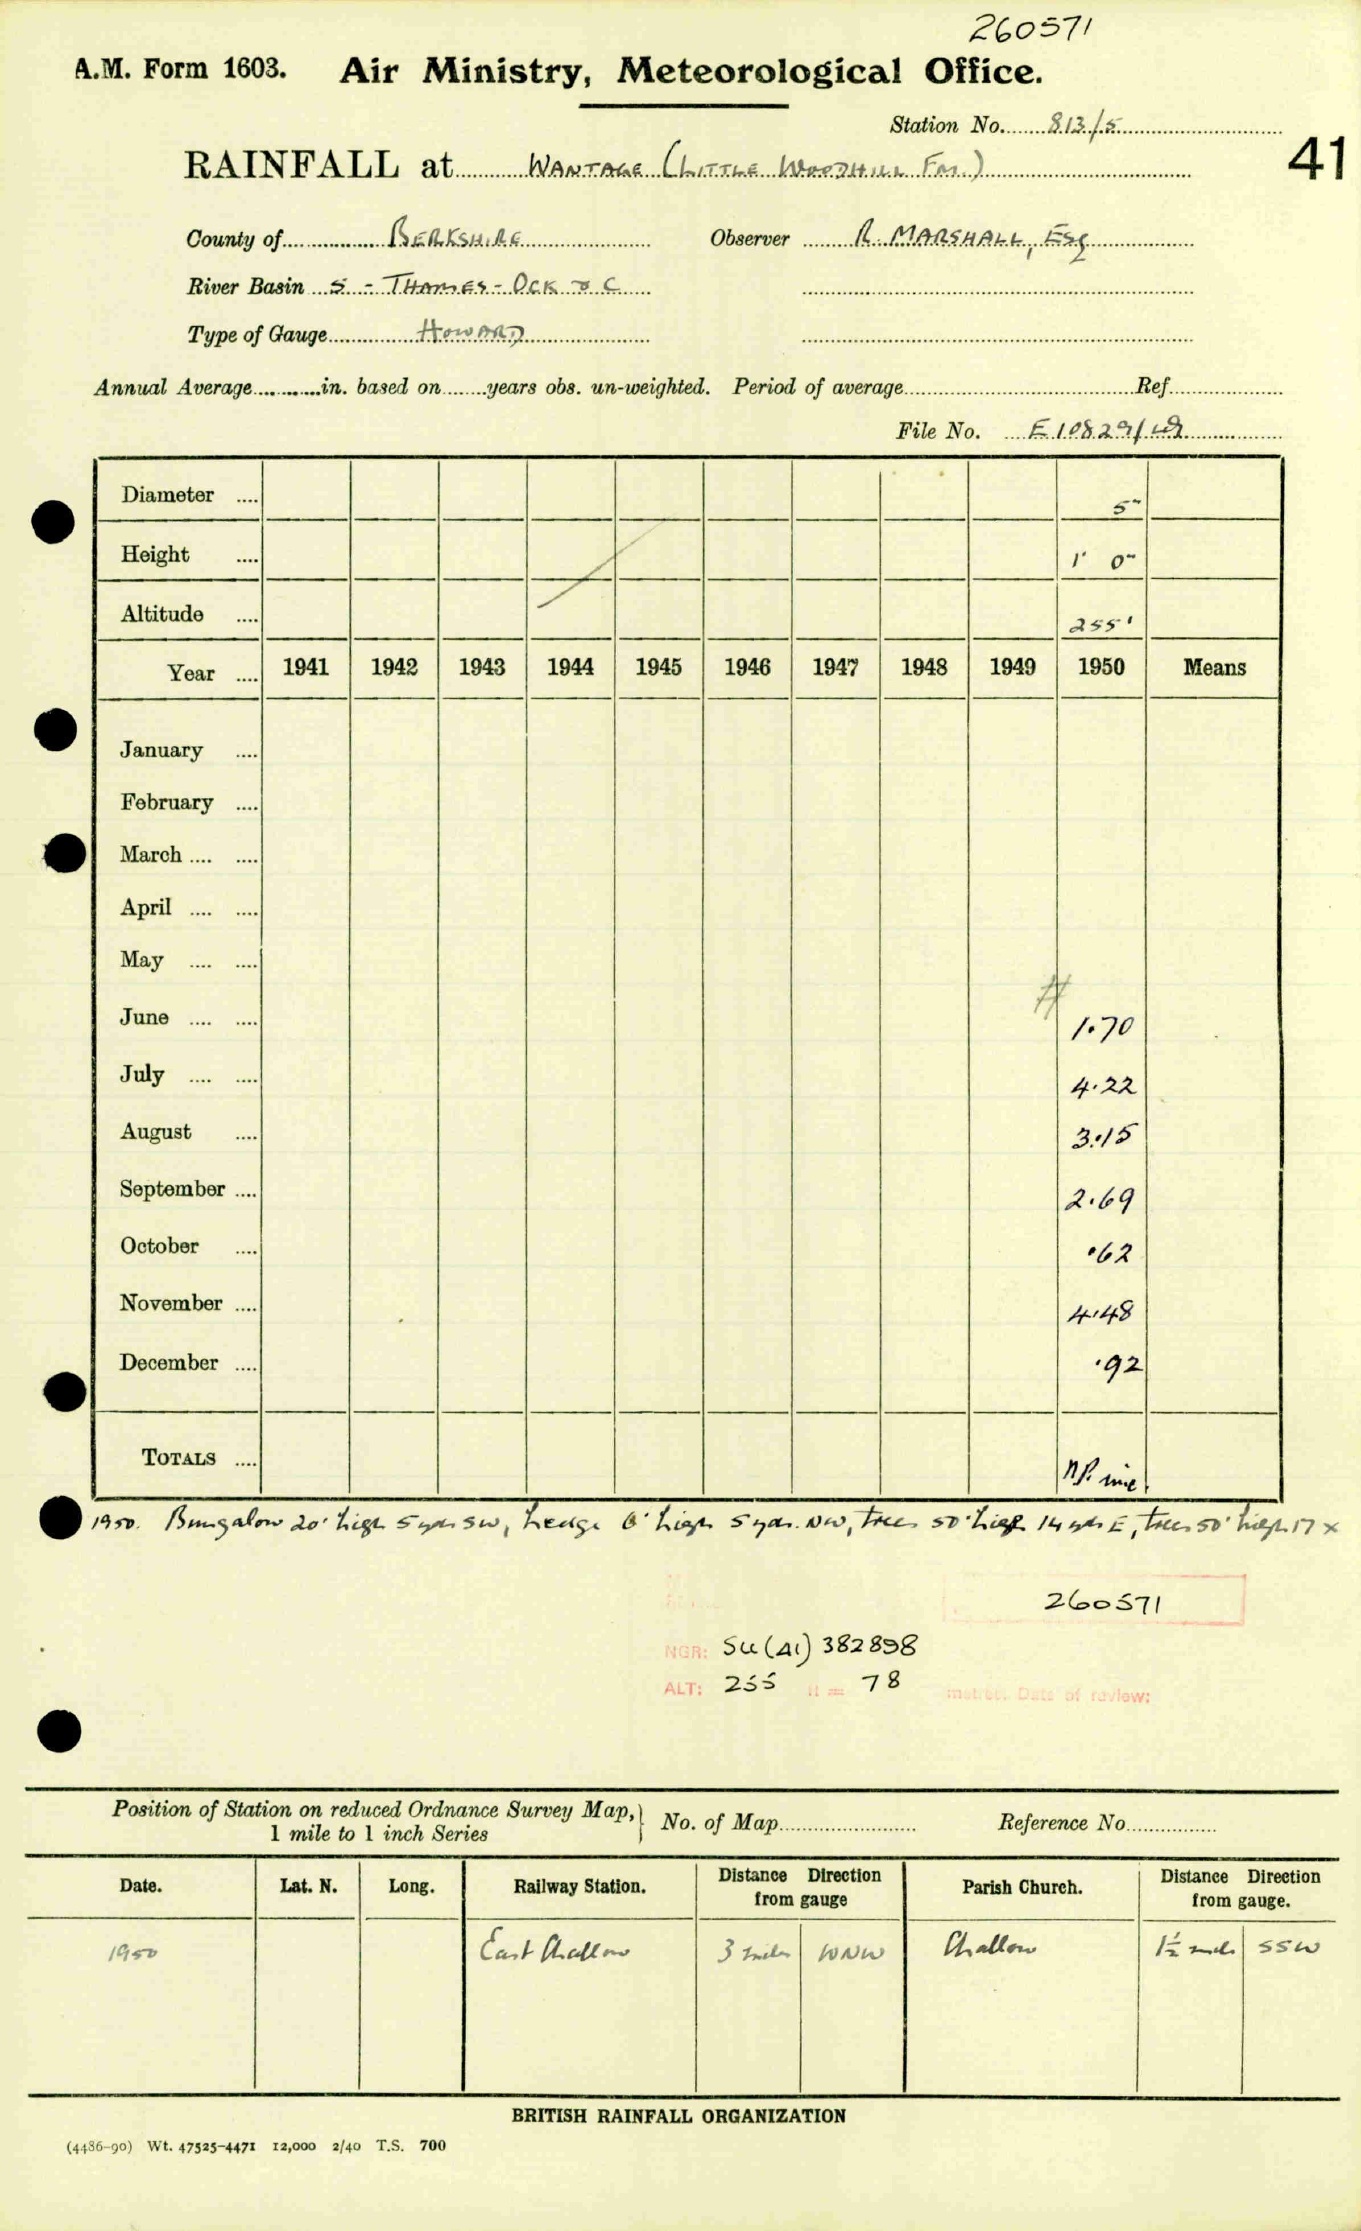 260571
A.M. Form 1603. Air Ministry, Meteorological Office.
Station No. 813/5
41
RAINFALL at WANTAGE (LITTLE WOODHILL FM.)
County of BERKSHIRE Observer R. MARSHALL, ESQ
River Basin 5 - THAMES - OCK & C
Type of Gauge HOWARD
Annual Average in. based on years obs. un-weighted. Period of average Ref.
File No. E10829/49
Diameter .... 5"
Height .... 1' 0"
Altitude .... 255'
Year .... 1941 1942 1943 1944 1945 1946 1947 1948 1949 1950 Means
January ....
February ....
March .... ....
April .... ....
May .... ....
June .... .... 1.70
July .... .... 4.22
August .... 3.15
September .... 2.69
October .... .62
November .... 4.48
December .... .92
TOTALS ....
1950. Bungalow 20' high 5 yds SW, hedge 6' high 5 yds. NW, trees 50' high 14 yds E, trees 50' high 17 x
260571
NGR: SU(41) 382898
ALT: 255 ft = 78 metres. Date of review:
Position of Station on reduced Ordnance Survey Map, } No. of Map Reference No.
1 mile to 1 inch Series
Date. Lat. N. Long. Railway Station. Distance Direction from gauge Parish Church. Distance Direction from gauge.
1950 East Challow 3 miles WNW Challow 1½ mile SSW
BRITISH RAINFALL ORGANIZATION
(4486-90) Wt. 47525-4471 12,000 2/40 T.S. 700